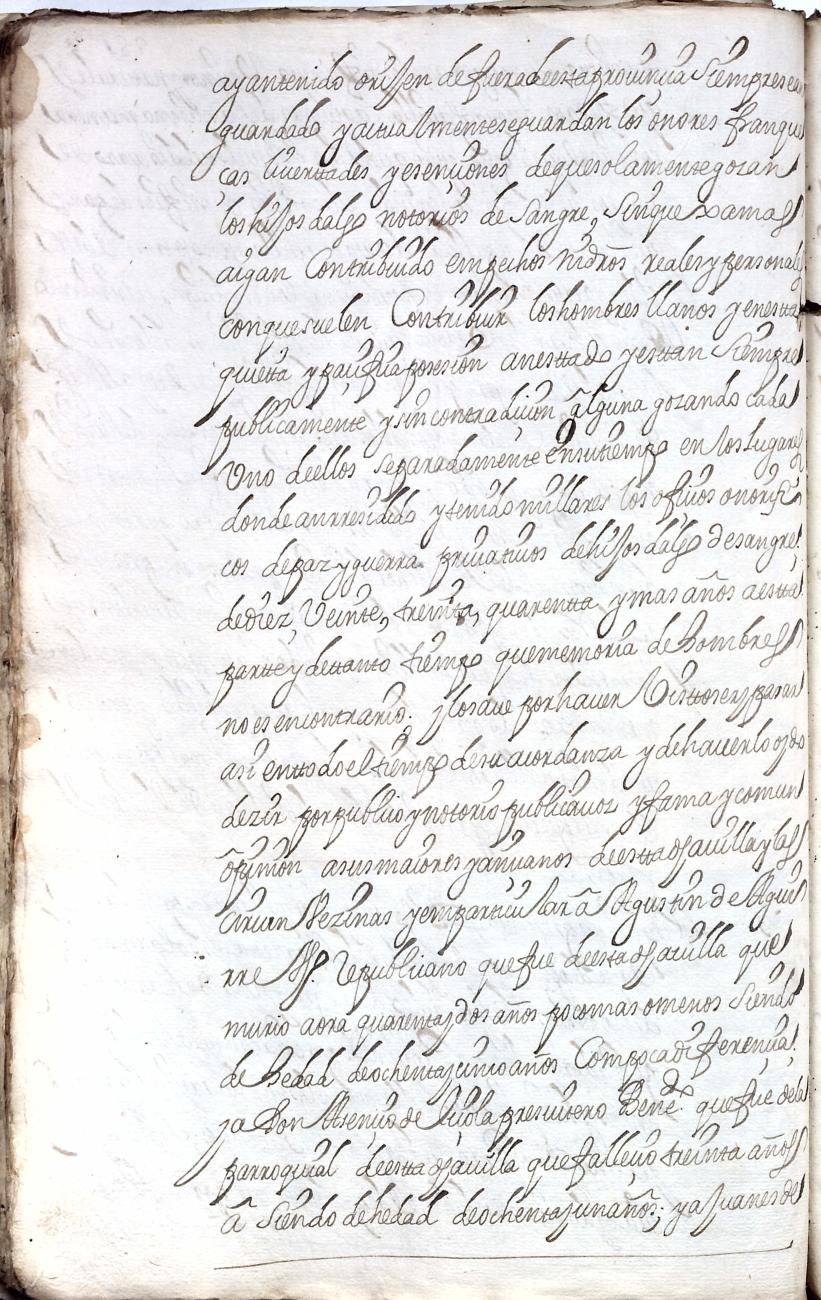 ayantenido orijen de fuera de esta provinçia siempre se a
guardado y actualmente se guardan los onores franque
ças livertades y esençiones de que solamente gozan
los hijos dalgo notorios de sangre, sin que xamas
aigan contribuido em pechos ni dros reales y personales
con que suelen contribuir los hombres llanos y en esta
quieta y paçifica posesion an estado y estan siempre
publicamente y sin contradiçion alguna gozando cada
uno de ellos separadamente en su tiempo en los lugares
donde an rresidido y tenido millares los ofiçios onorifi
cos de paz y guerra privativos de hijos dalgo de sangre
de diez, veinte, treinta, quarentta y mas años a esta
parte y de ttanto tiempo que memoria de hombres
no es en contrario. y lo save por haver visto ser y pasar
asi en todo el tiempo de su acordanza y de haverlo oydo
dezir por publico y notorio publica voz y fama y comun
opinion a sus maiores y ançianos de esta dha villa y las
circunvezinas y em particular â Agustin de Aguir
rre Republicano que fue de esta dha villa que
murio aora quarenta y dos años poco mas o menos siendo
de hedad de ochenta y cinco años com poca diferençia.
ya Don Asençio de presvitero Bene.do que fue de la
parroquial de esta dha villa que falleçio treinta años
â siendo de hedad de ochenta y un años; y a Juanes de